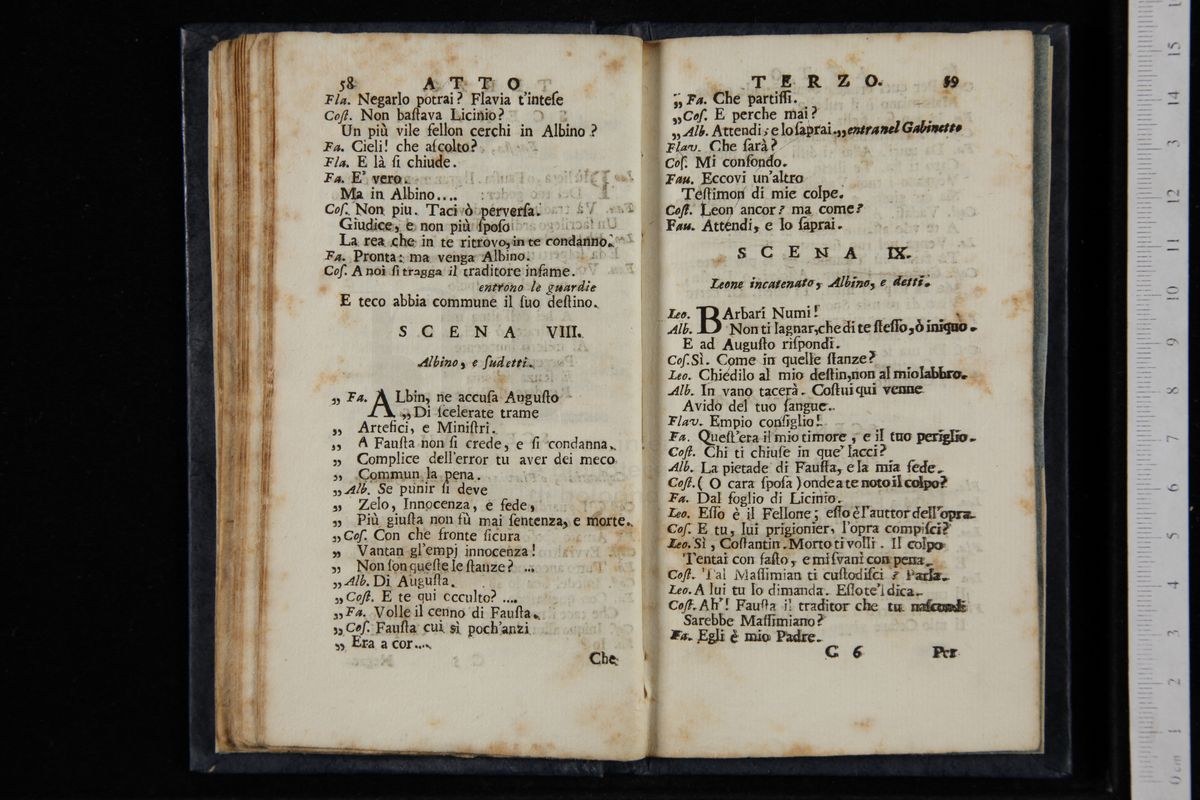 58 ATTO
Fla. Negarlo potrai? Flavia t'inteſe
Coſt. Non baſtava Licinio?
Un più vile fellon cerchi in Albino?
Fa. Cieli! che aſcolto?
Fla. E là ſi chiude.
Fa. E' vero.
Ma in Albino....
Coſ. Non piu. Taci ò perverſa.
Giudice, e non più ſpoſo
La rea che in te ritrovo, in te condanno.
Fa. Pronta: ma venga Albino.
Coſ. A noi ſi tragga il traditore infame.
entrono le guardie
E teco abbia commune il ſuo deſtino.
SCENA VIII.
Albino, e ſudetti.
„ Fa. ALbin, ne accuſa Auguſto
„ Di ſcelerate trame
„ Artefici, e Miniſtri.
„ A Fauſta non ſi crede, e ſi condanna.
„ Complice dell'error tu aver dei meco
„ Commun la pena.
„ Alb. Se punir ſi deve
„ Zelo, Innocenza, e fede,
„ Più giuſta non fù mai ſentenza, e morte.
„ Coſ. Con che fronte ſicura
„ Vantan gl'empj innocenza!
„ Non ſon queſte le ſtanze? ...
„ Alb. Di Auguſta.
„ Coſt. E te qui occulto? ....
„ Fa. Volle il cenno di Fauſta.
„ Coſ. Fauſta cui sì poch'anzi
„ Era a cor....
Che
TERZO. 59
„ Fa. Che partiſſi.
„ Coſ. E perche mai?
„ Alb. Attendi, e lo ſaprai. „ entra nel Gabinetto
Flav. Che ſarà?
Coſ. Mi confondo.
Fau. Eccovi un'altro
Teſtimon di mie colpe.
Coſt. Leon ancor? ma come?
Fau. Attendi, e lo ſaprai.
SCENA IX.
Leone incatenato, Albino, e detti.
Leo. BArbari Numi!
Alb. Non ti lagnar, che di te ſteſſo, ò iniquo.
E ad Auguſto riſpondi.
Coſ. Sì. Come in quelle ſtanze?
Leo. Chiedilo al mio deſtin, non al mio labbro.
Alb. In vano tacerà. Coſtui qui venne
Avido del tuo ſangue.
Flav. Empio conſiglio!
Fa. Queſt'era il mio timore, e il tuo periglio.
Coſt. Chi ti chiuſe in que' lacci?
Alb. La pietade di Fauſta, e la mia fede.
Coſt. ( O cara ſpoſa ) onde a te noto il colpo?
Fa. Dal foglio di Licinio.
Leo. Eſſo è il Fellone; eſſo è l'auttor dell'opra.
Coſ. E tu, lui prigionier, l'opra compiſci?
Leo. Sì, Coſtantin. Morto ti volli. Il colpo
Tentai con faſto, e mi ſvanì con pena.
Coſt. Tal Maſſimian ti cuſtodiſci? Parla.
Leo. A lui tu lo dimanda. Eſſo te'l dica.
Coſt. Ah'! Fauſta il traditor che tu naſcondi
Sarebbe Maſſimiano?
Fa. Egli è mio Padre.
C 6 Per